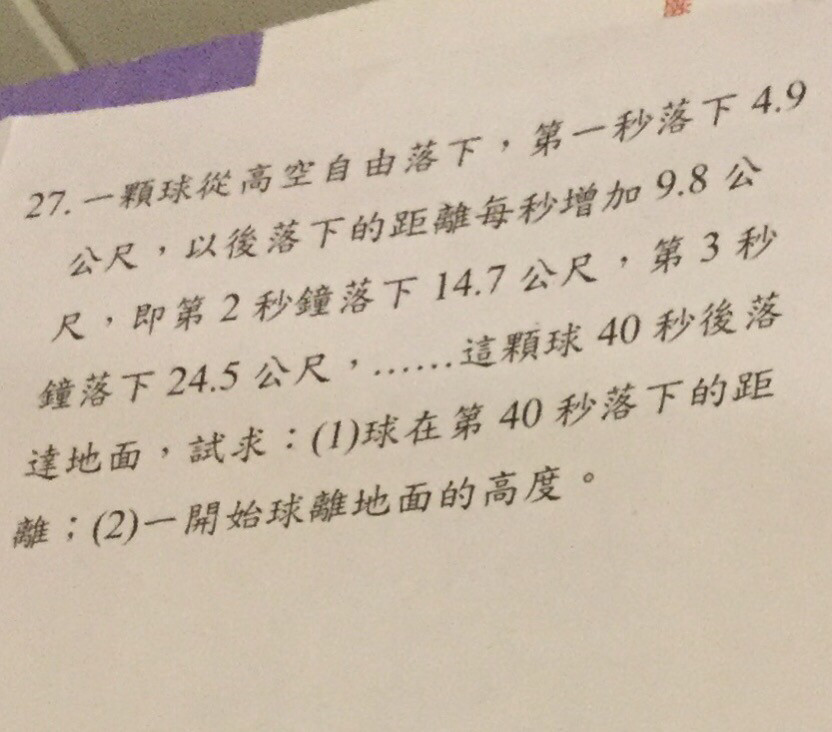 27. 一顆球從高空自由落下，第一秒落下 4.9
公尺，以後落下的距離每秒增加 9.8 公
尺，即第 2 秒鐘落下 14.7 公尺，第 3 秒
鐘落下 24.5 公尺，……這顆球 40 秒後落
達地面，試求：(1)球在第 40 秒落下的距
離；(2)一開始球離地面的高度。